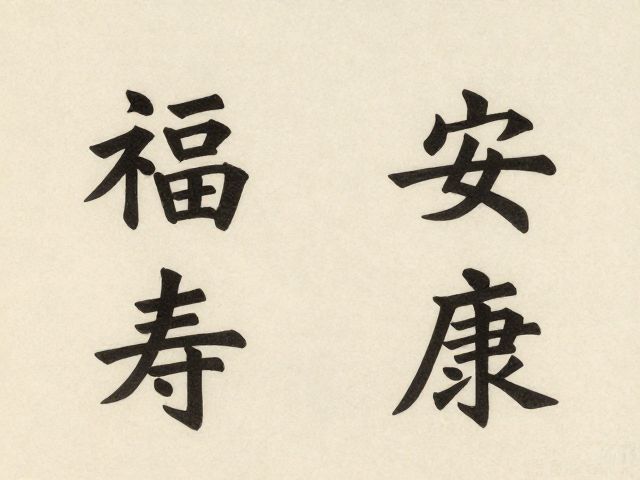 福寿
安康